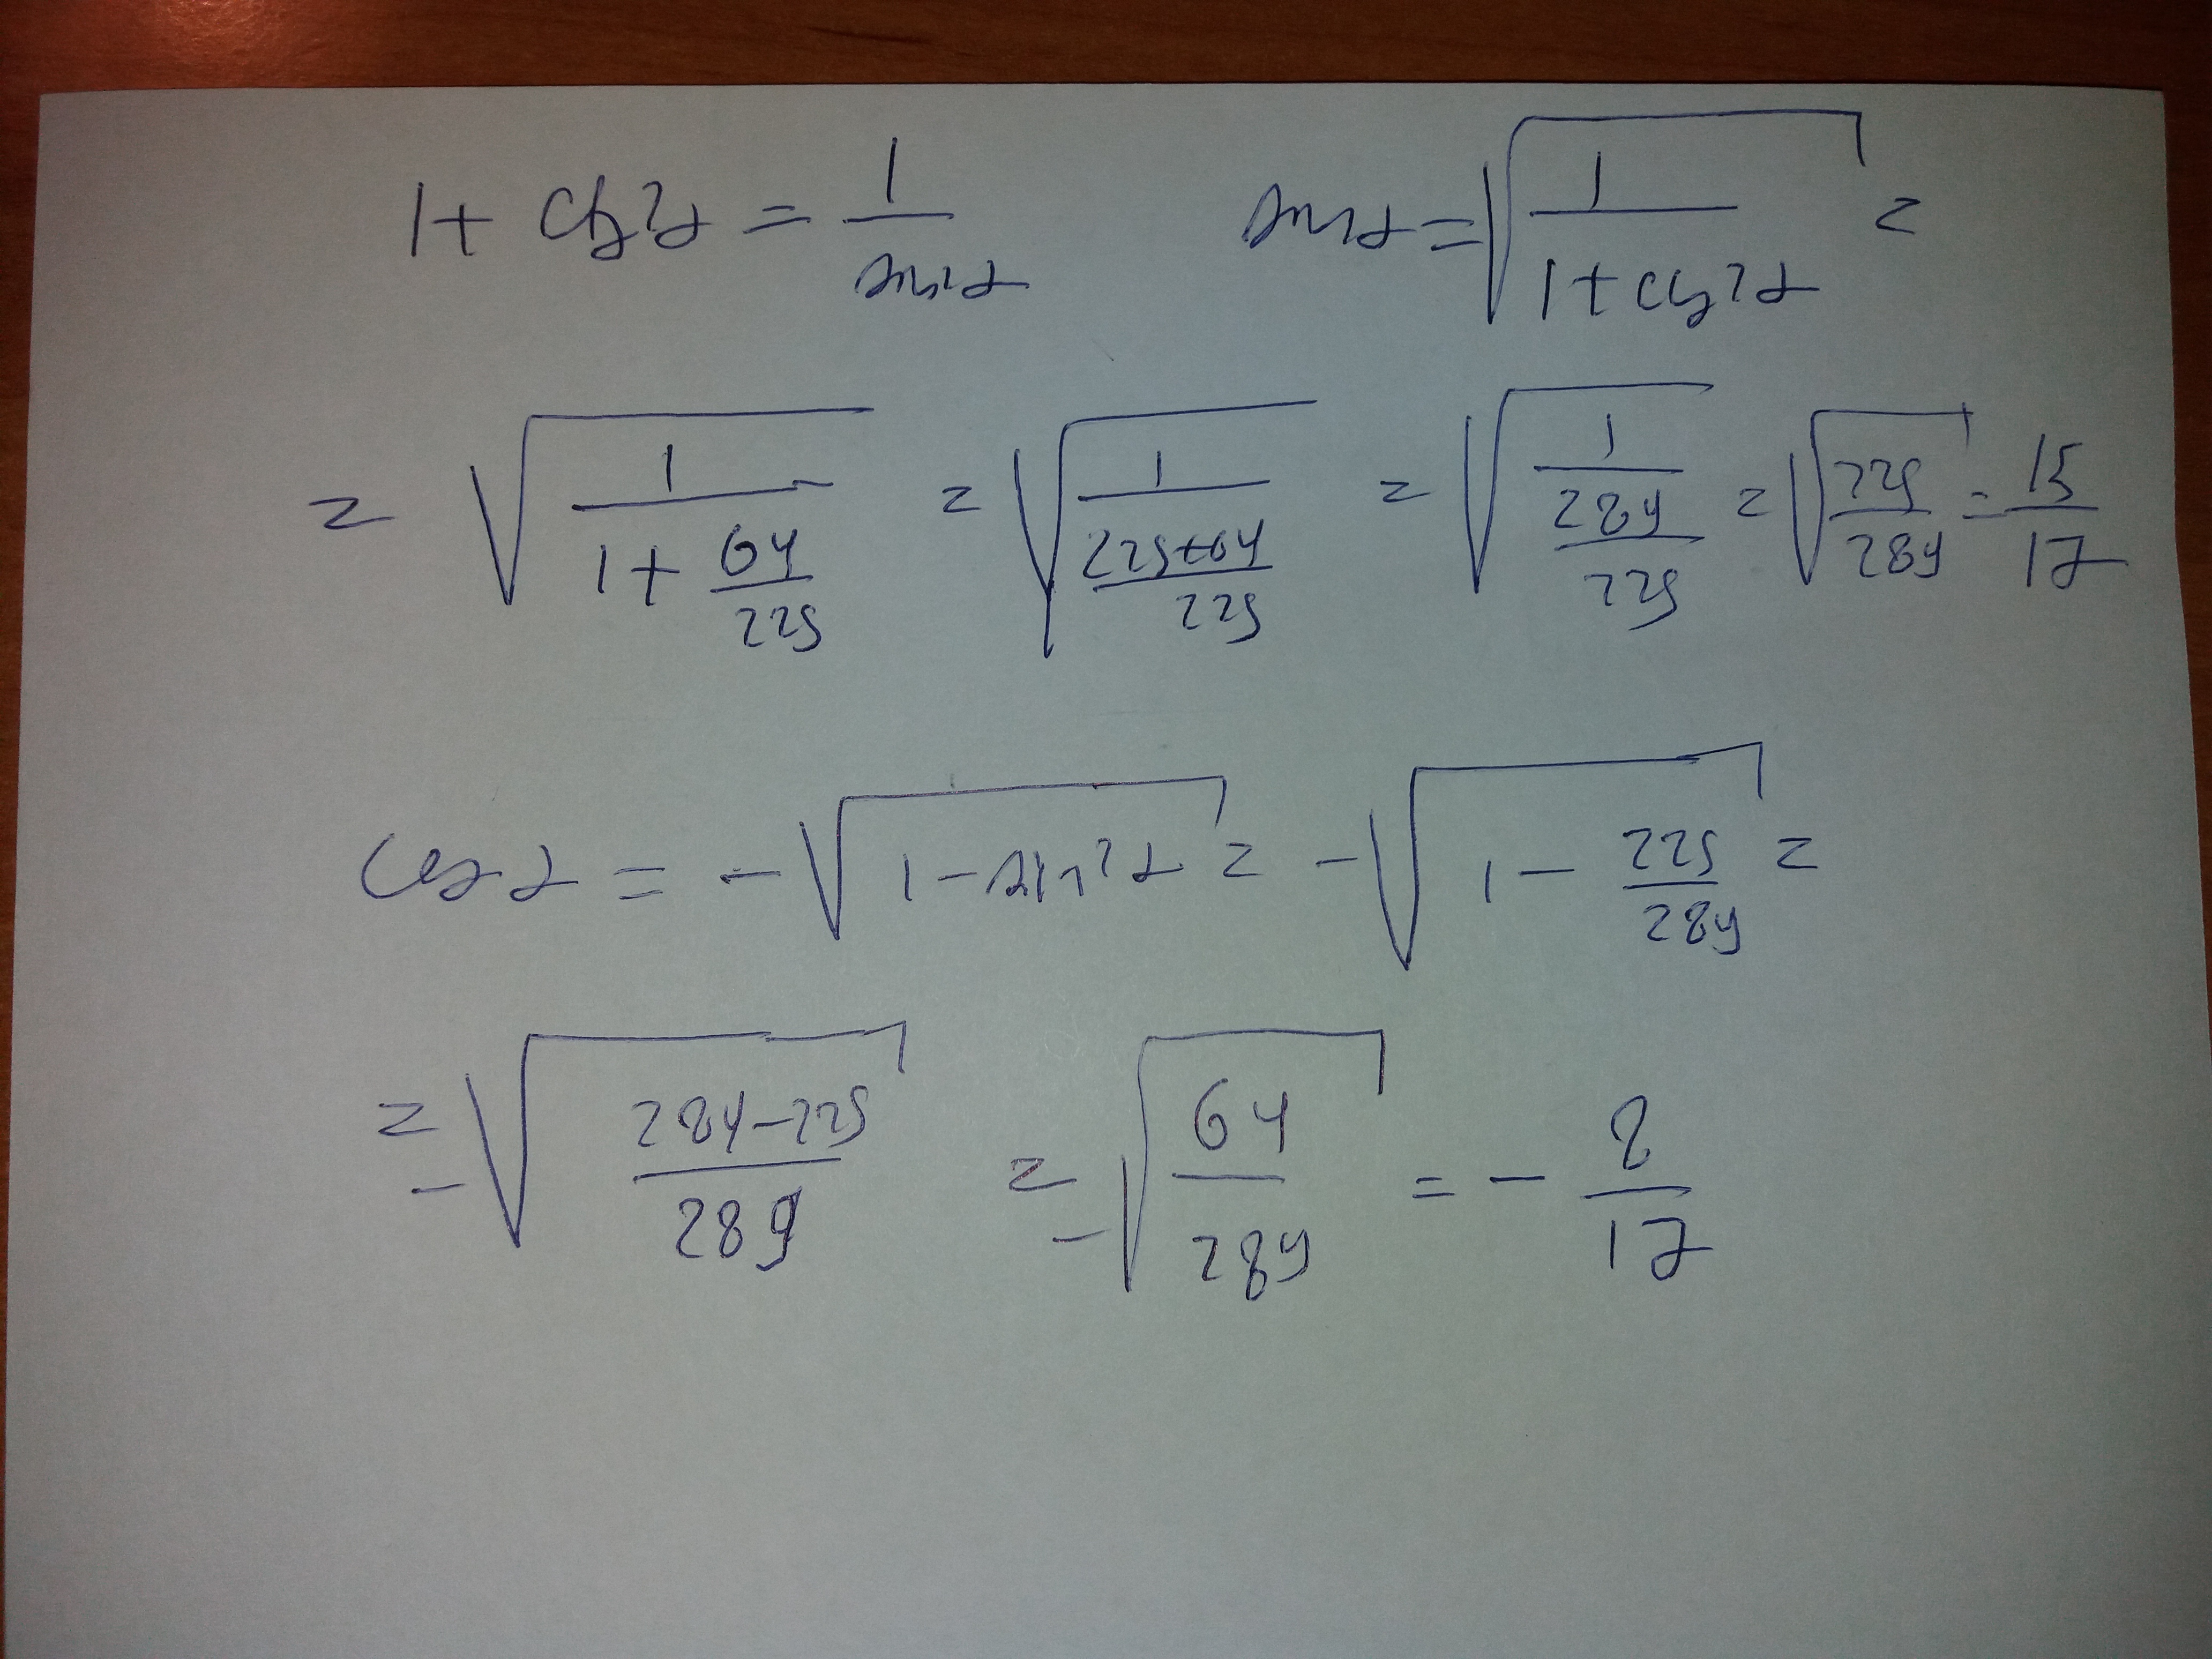 1 + ctg²α = 1/sin²α sin α = √(1/(1 + ctg²α)) =
= √(1/(1 + 64/225)) = √(1/((225+64)/225)) = √(1/(289/225)) = √(225/289) = 15/17
cos α = -√(1 - sin²α) = -√(1 - 225/289) =
= -√((289-225)/289) = -√(64/289) = - 8/17